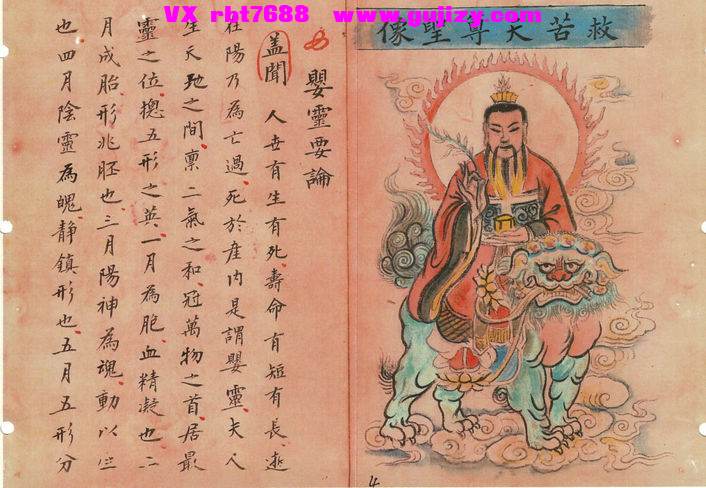 VX rbt7688 www.gujizy.com
救苦天尊聖像
嬰靈要論
盖聞 人世有生有死壽命有短有長逝
在陽乃為亡過死於産内是謂嬰靈夫人
生天地之間稟二氣之和冠萬物之首居最
靈之位摠五形之英一月為胞血精凝也二
月成胎形兆胚也三月陽神為魂動以生
也四月陰靈為魄静鎮形也五月五形分
4